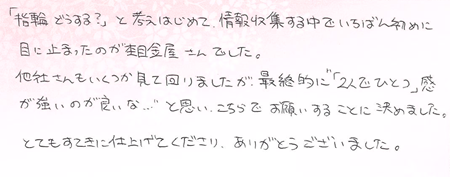 「指輪どうする？」と考えはじめて、情報収集する中でいちばん初めに
目に止まったのが杢目金屋さんでした。
他社さんもいくつか見て回りましたが、最終的に「2人でひとつ」感
が強いのが良いな…”と思い、こちらでお願いすることに決めました。
とてもすてきに仕上げてくださり、ありがとうございました。